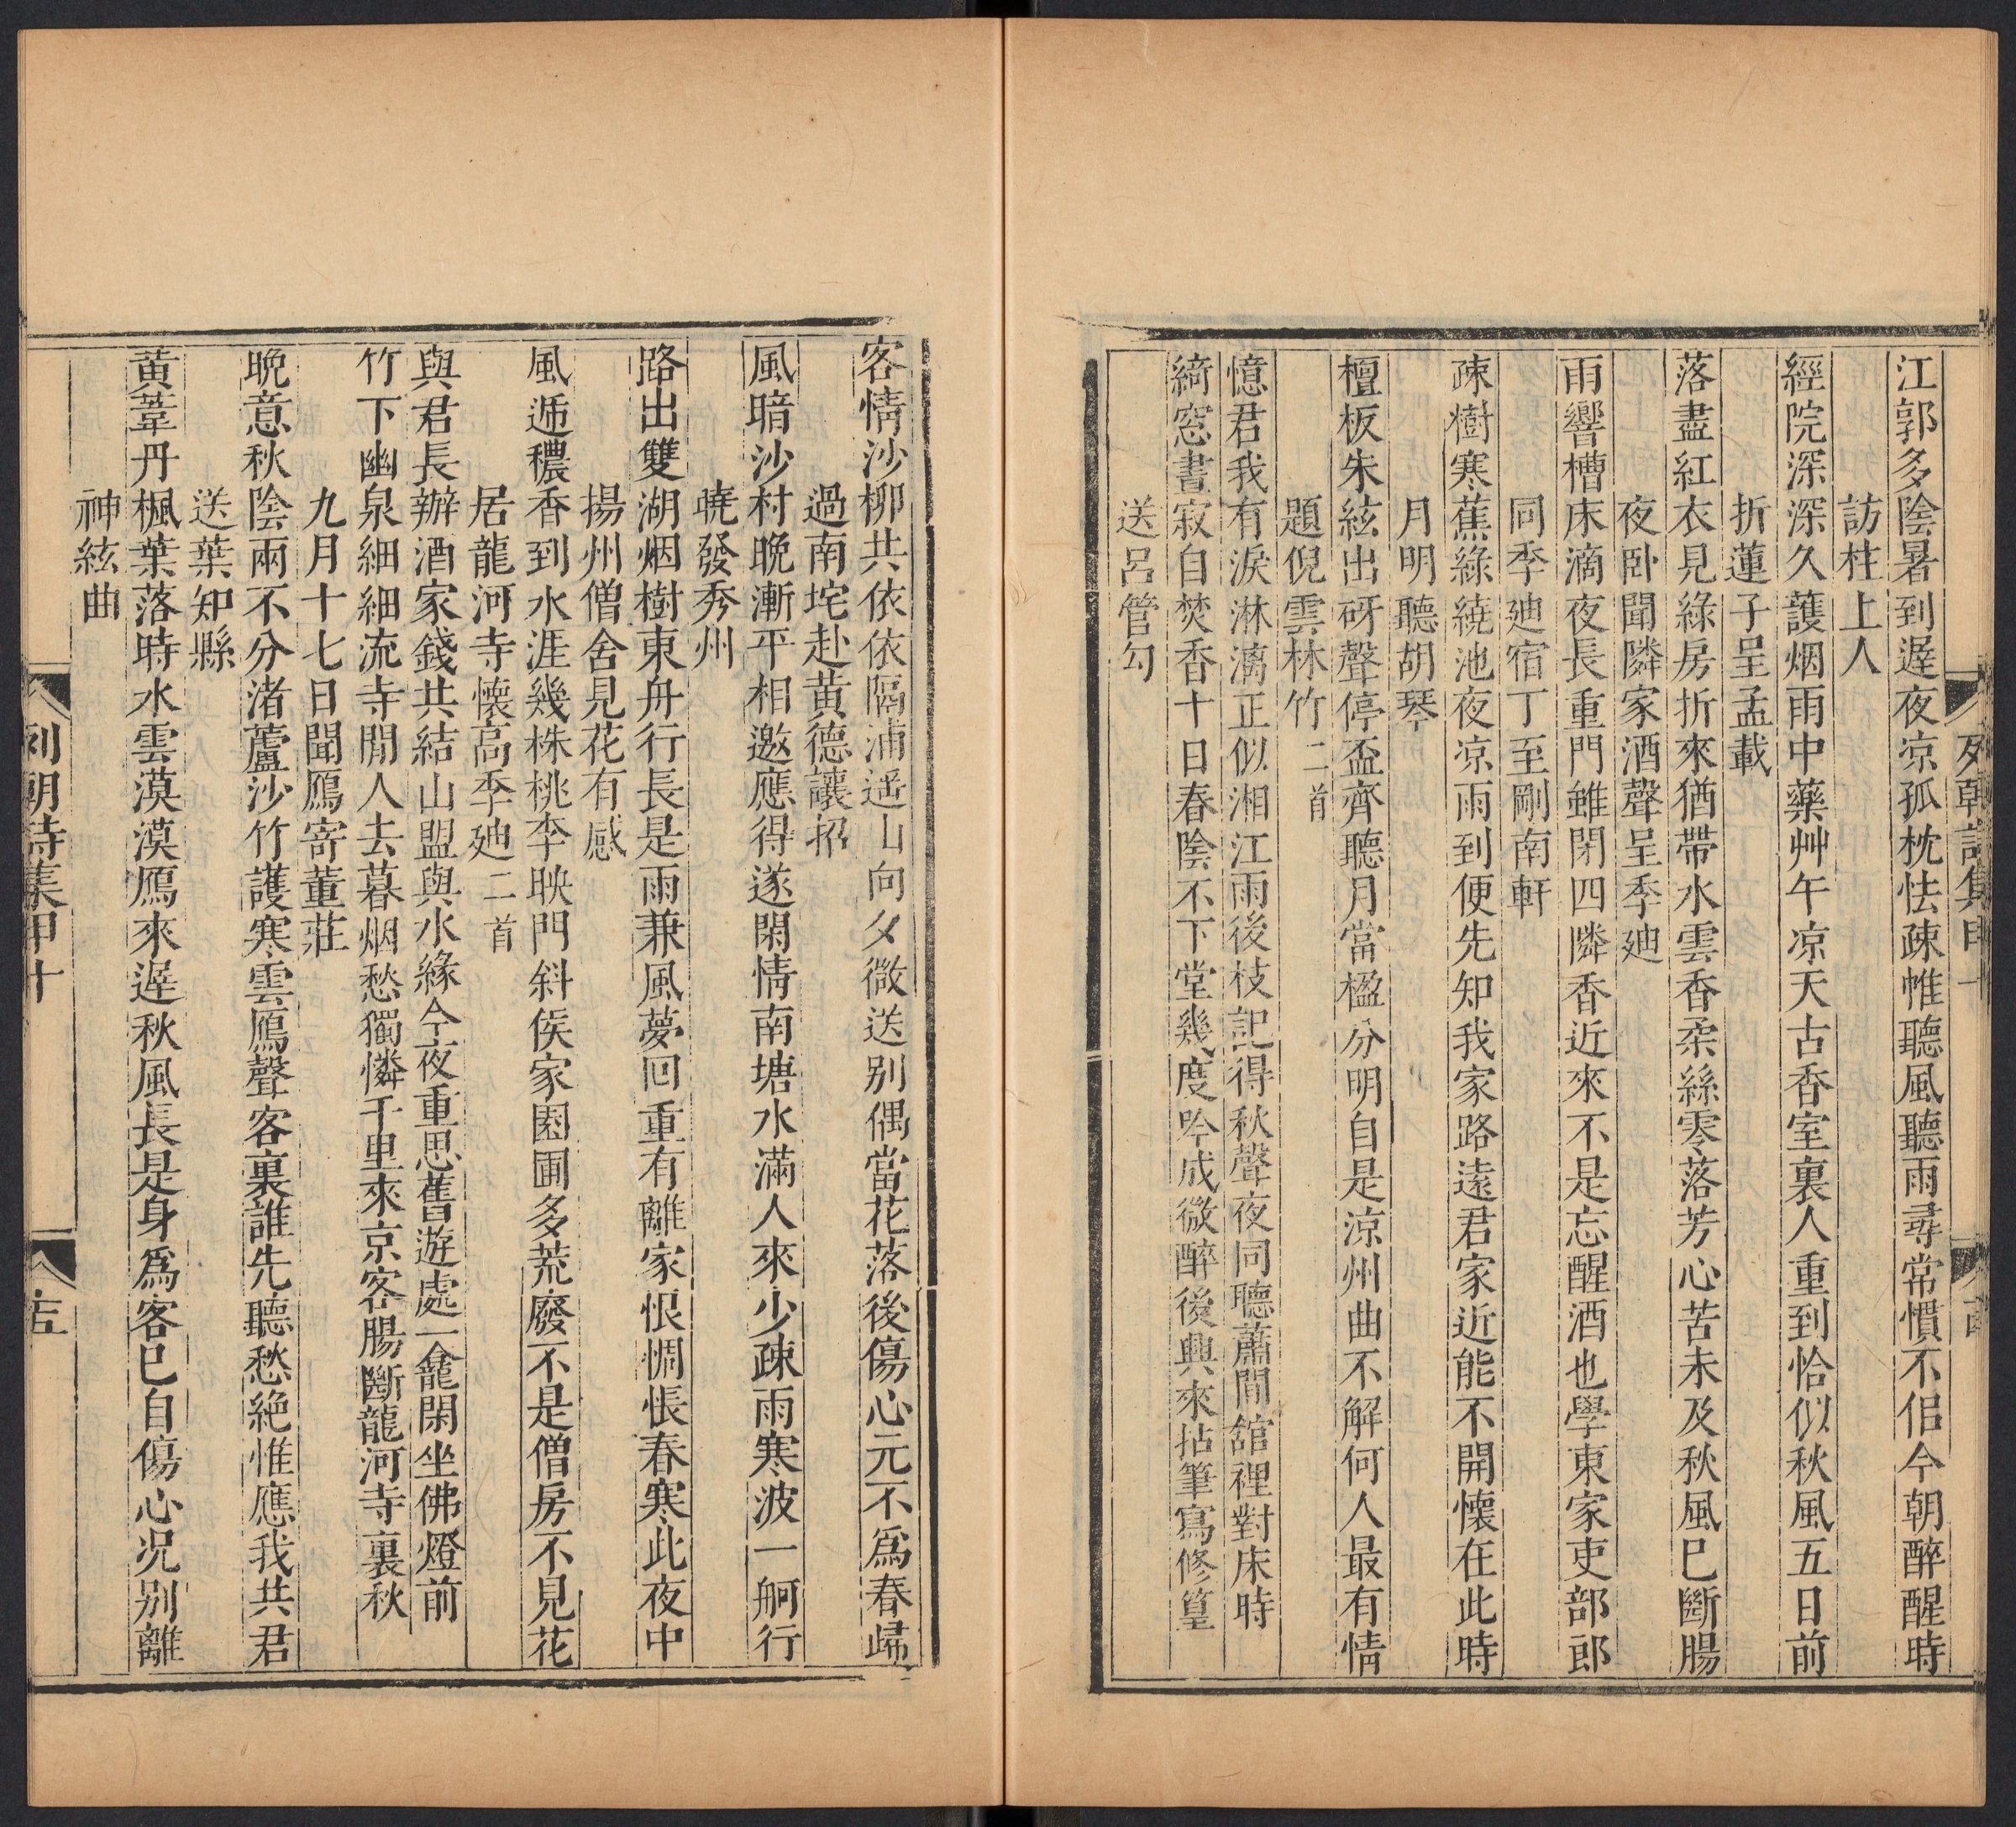 江郭多陰暑到遲夜凉孤枕怯疎帷聽風聽雨尋常慣不侶今朝醉醒時
訪柱上人
經院深深久護烟雨中藥艸午凉天古香室裏人重到恰似秋風五日前
折蓮子呈孟載
落盡紅衣見綠房折來猶帶水雲香柔絲零落芳心苦未及秋風巳斷腸
夜卧聞隣家酒聲呈季廸
雨響槽床滴夜長重門雖閉四隣香近來不是忘醒酒也學東家吏部郎
同季廸宿丁至剛南軒
疎樹寒蕉綠繞池夜凉雨到便先知我家路遠君家近能不開懷在此時
月明聽胡琴
檀板朱絃出砑聲停盃齊聽月當楹分明自是凉州曲不解何人最有情
題倪雲林竹二首
憶君我有淚淋漓正似湘江雨後枝記得秋聲夜同聽蕭閒舘裡對床時
綺窓晝寂自焚香十日春陰不下堂幾度吟成微醉後興來拈筆寫修篁
送呂管勾
客情沙柳共依依隔浦遥山向夕微送别偶當花落後傷心元不爲春歸
過南垞赴黃德讓招
風暗沙村晚漸平相邀應得遂閑情南塘水滿人來少疎雨寒波一舸行
曉發秀州
路出雙湖烟樹東舟行長是雨兼風夢回重有離家恨惆悵春寒此夜中
揚州僧舍見花有感
風遞穠香到水涯幾株桃李映門斜侯家園圃多荒廢不是僧房不見花
居龍河寺懷高季廸二首
與君長辦酒家錢共結山盟與水緣今夜重思舊遊處一龕閑坐佛燈前
竹下幽泉細細流寺閒人去暮烟愁獨憐千里來京客腸斷龍河寺裏秋
九月十七日聞鴈寄董莊
晩意秋陰兩不分渚蘆沙竹護寒雲鴈聲客裏誰先聽愁絶惟應我共君
送葉知縣
黃葦丹楓葉落時水雲漠漠鴈來遲秋風長是身爲客巳自傷心况别離
神絃曲
列朝詩集甲十